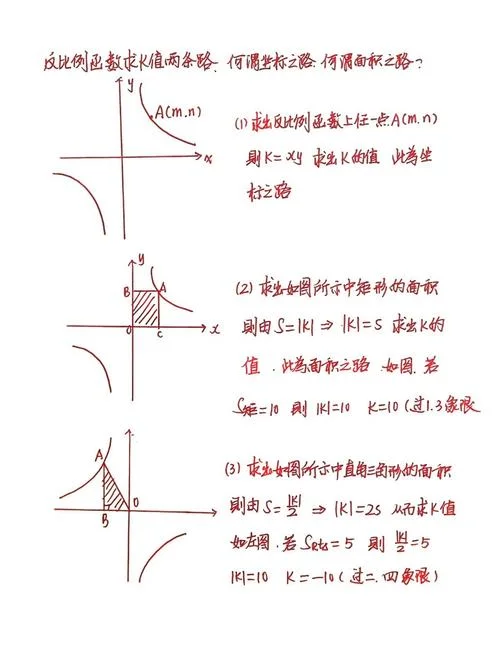 反比例函数求K值两条路. 何谓坐标之路. 何谓面积之路?
y
A(m.n)
x
(1) 求出反比例函数上任一点A(m.n)
则K=xy 求出K的值 此为坐
标之路
y
B
A
O
C
x
(2) 求出如图所示中矩形的面积
则由S=|K| ⇒ |K|=S 求出K的
值. 此为面积之路 如图. 若
S矩=10 则 |K|=10 K=10(过1.3象限
A
B
O
(3) 求出如图所示中直角三角形的面积
则由S=|K|/2 ⇒ |K|=2S 从而求K值
如左图. 若SRt△=5 则 |K|/2=5
|K|=10 K=-10(过二.四象限)